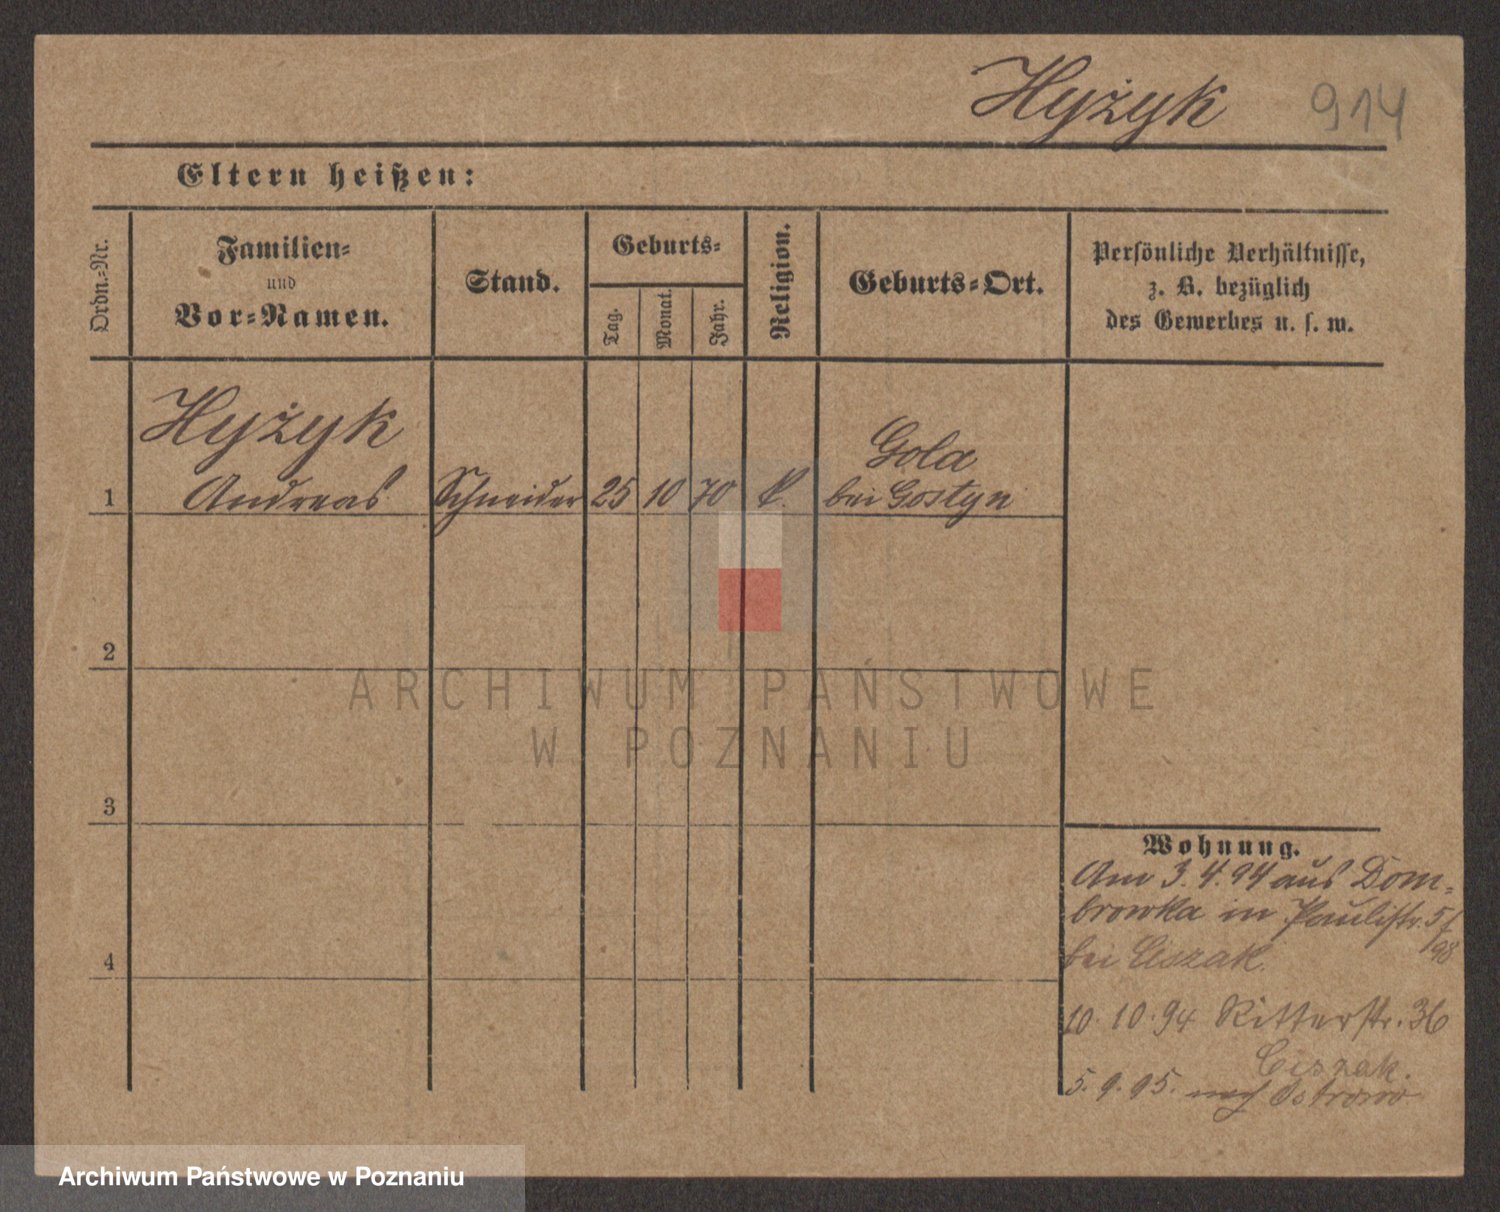 Hyżyk 914
Eltern heißen:
Ordn.-Nr.
Familien-
und
Vor-Namen.
Stand.
Geburts-
Tag.
Monat.
Jahr.
Religion.
Geburts-Ort.
Persönliche Verhältnisse,
z. B. bezüglich
des Gewerbes u. s. w.
Hyżyk
Gola
1 Andreas Schneider 25 10 70 k. bei Gostyn
2
ARCHIWUM PAŃSTWOWE
W POZNANIU
3
Wohnung.
Am 3.4.94 aus Dom-
browka in Paulistr. 5
98
bei Ciszak.
4
10.10.94 Ritterstr. 36
Ciszak.
5.9.95. nach Ostrowo
Archiwum Państwowe w Poznaniu